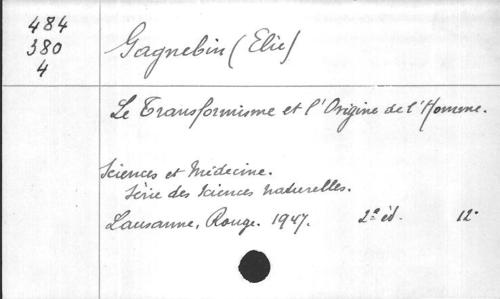 484
380
4
Gagnebin (Elie)
Le Transformisme et l'Origine de l'Homme.
Sciences et Médecine.
Série des Sciences naturelles.
Lausanne, Rouge. 1947. 2e éd. 12°